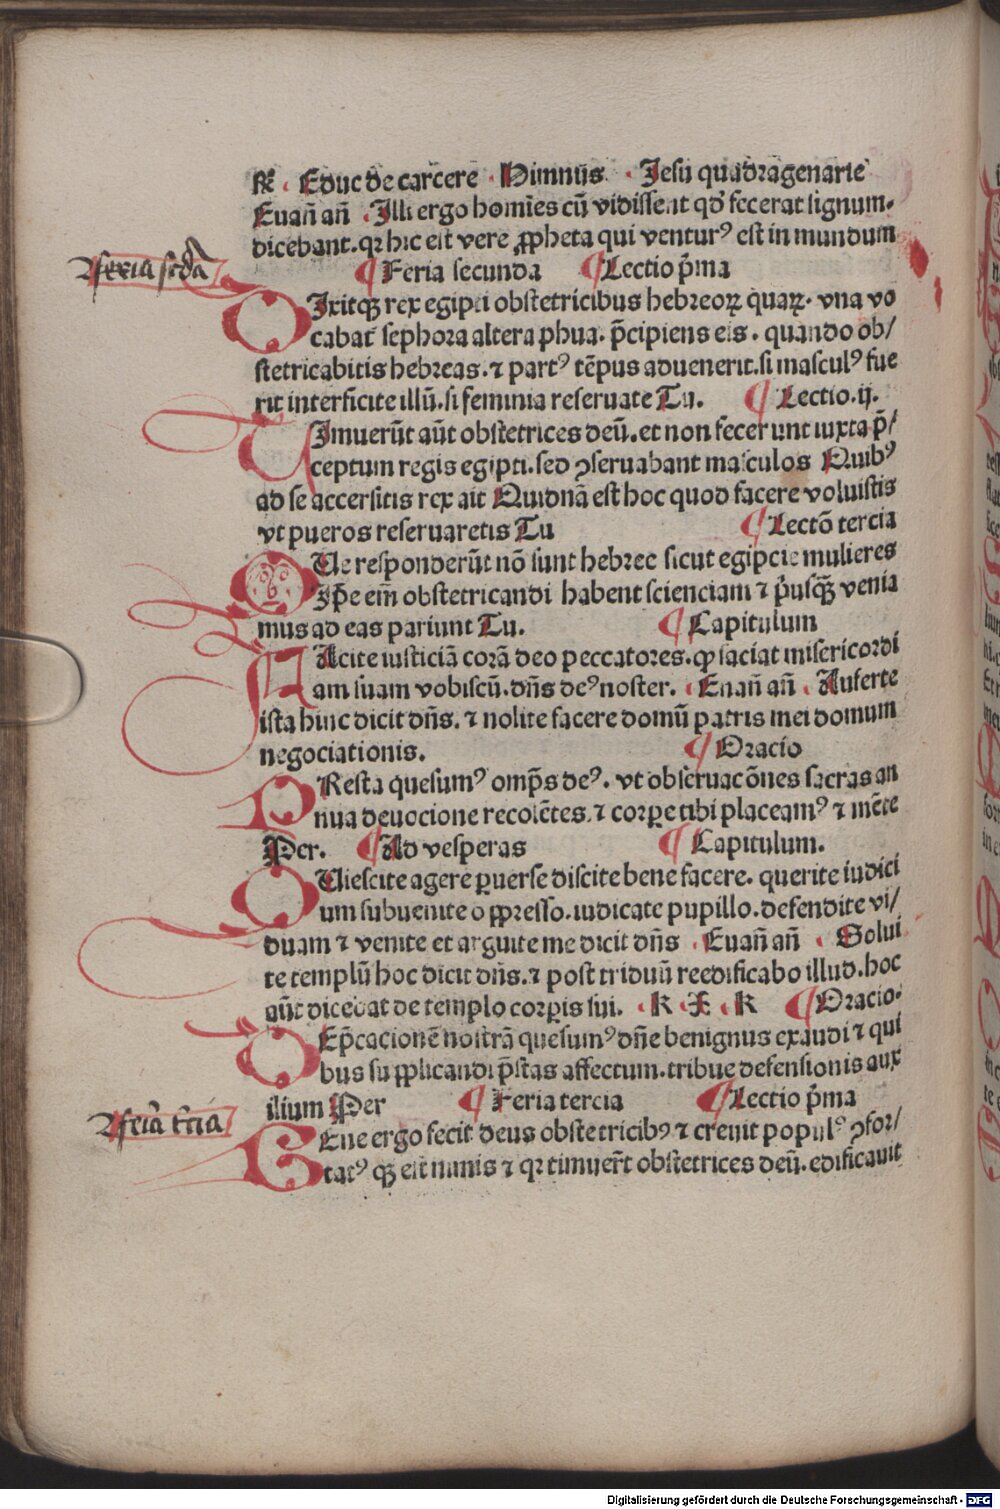 R̄. Educ de carcere Himnus. Jesu quadragenarie
Euan̄ an̄ Illi ergo homīes cū vidissent qď fecerat signum.
dicebant. qꝛ hic est vere ꝓpheta qui venturꝰ est in mundum
feria scďa
¶ Feria secunda ¶ Lectio p̄ma
DIxitqꝫ rex egipti obstetricibus hebreoꝝ quaꝝ. vna vo
cabat̄ sephora altera phua. p̄cipiens eis. quando ob/
stetricabitis hebreas. ⁊ partꝰ tēpus aduenerit. si masculꝰ fue
rit interficite illū. si feminia reseruate Tu. ¶ Lectio. ij.
TImuerūt aūt obstetrices deū. et non fecerunt iuxta p̄/
ceptum regis egipti. sed ꝯseruabant masculos Quibꝰ
ad se accersitis rex ait Quidnā est hoc quod facere voluistis
vt pueros reseruaretis Tu ¶ Lectō tercia
QUe responderūt nō sunt hebree sicut egipcie mulieres
Ip̄e em̄ obstetricandi habent scienciam ⁊ p̄usqꝫ venia
mus ad eas pariunt Tu. ¶ Capitulum
FAcite iusticiā corā deo peccatores. ꝙ faciat misericordi
am suam vobiscū. dn̄s deꝰ noster. Euan̄ an̄. Auferte
ista hinc dicit dn̄s. ⁊ nolite facere domū patris mei domum
negociationis. ¶ Oracio
PResta quesumꝰ omp̄s deꝰ. vt obseruacōnes sacras an
nua deuocione recolētes. ⁊ corꝑe tibi placeamꝰ ⁊ mēte
Per. ¶ Ad vesperas ¶ Capitulum.
QUiescite agere ꝑuerse discite bene facere. querite iudici
um subuenite oppresso. iudicate pupillo. defendite vi/
duam ⁊ venite et arguite me dicit dn̄s Euan̄ an̄. Solui
te templū hoc dicit dn̄s. ⁊ post triduū reedificabo illud. hoc
aūt dicebat de templo corꝑis sui. k x k ¶ Oracio.
DEp̄cacionē nostrā quesumꝰ dn̄e benignus exaudi ⁊ qui
bus supplicandi p̄stas affectum. tribue defensionis aux
ilium Per ¶ Feria tercia ¶ Lectio p̄ma
feīa t̄cia
BEne ergo fecit deus obstetricibꝰ ⁊ creuit populꝰ ꝯfor/
tatꝰ qꝫ est nimis ⁊ qꝛ timuer̄t obstetrices deū. edificauit
Digitalisierung gefördert durch die Deutsche Forschungsgemeinschaft - DFG